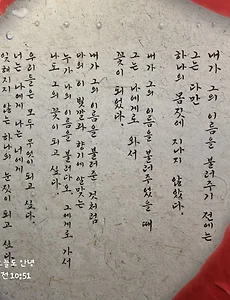 내가 그의 이름을 불러주기 전에는
그는 다만
하나의 몸짓에 지나지 않았다.
내가 그의 이름을 불러주었을 때
그는 나에게로 와서
꽃이 되었다.
내가 그의 이름을 불러준 것처럼
나의 이 빛깔과 향기에 알맞는
누가 나의 이름을 불러다오. 그에게로 가서
나도 그의 꽃이 되고 싶다.
우리들은 모두 무엇이 되고 싶다.
너는 나에게 나는 너에게
잊혀지지 않는 하나의 눈짓이 되고 싶다.
안녕
전 10:51